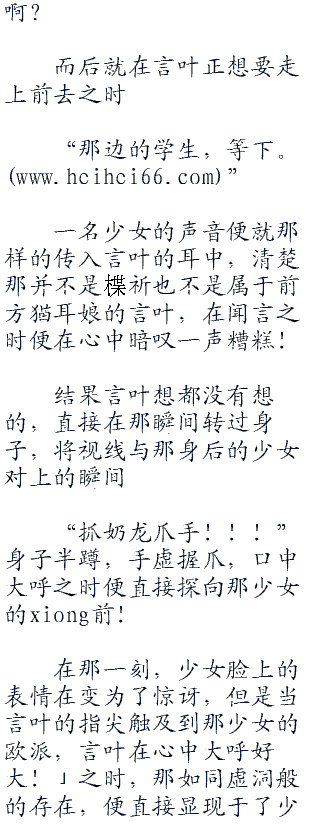 啊？
而后就在言叶正想要走
上前去之时
“那边的学生，等下。
(www.hcihci66.com)”
一名少女的声音便就那
样的传入言叶的耳中，清楚
那并不是楪祈也不是属于前
方猫耳娘的言叶，在闻言之
时便在心中暗叹一声糟糕！
结果言叶想都没有想
的，直接在那瞬间转过身
子，将视线与那身后的少女
对上的瞬间
“抓奶龙爪手！！！”
身子半蹲，手虚握爪，口中
大呼之时便直接探向那少女
的xiong前！
在那一刻，少女脸上的
表情在变为了惊讶，但是当
言叶的指尖触及到那少女的
欧派，言叶在心中大呼好
大！」之时，那如同虚洞般
的存在，便直接显现于了少